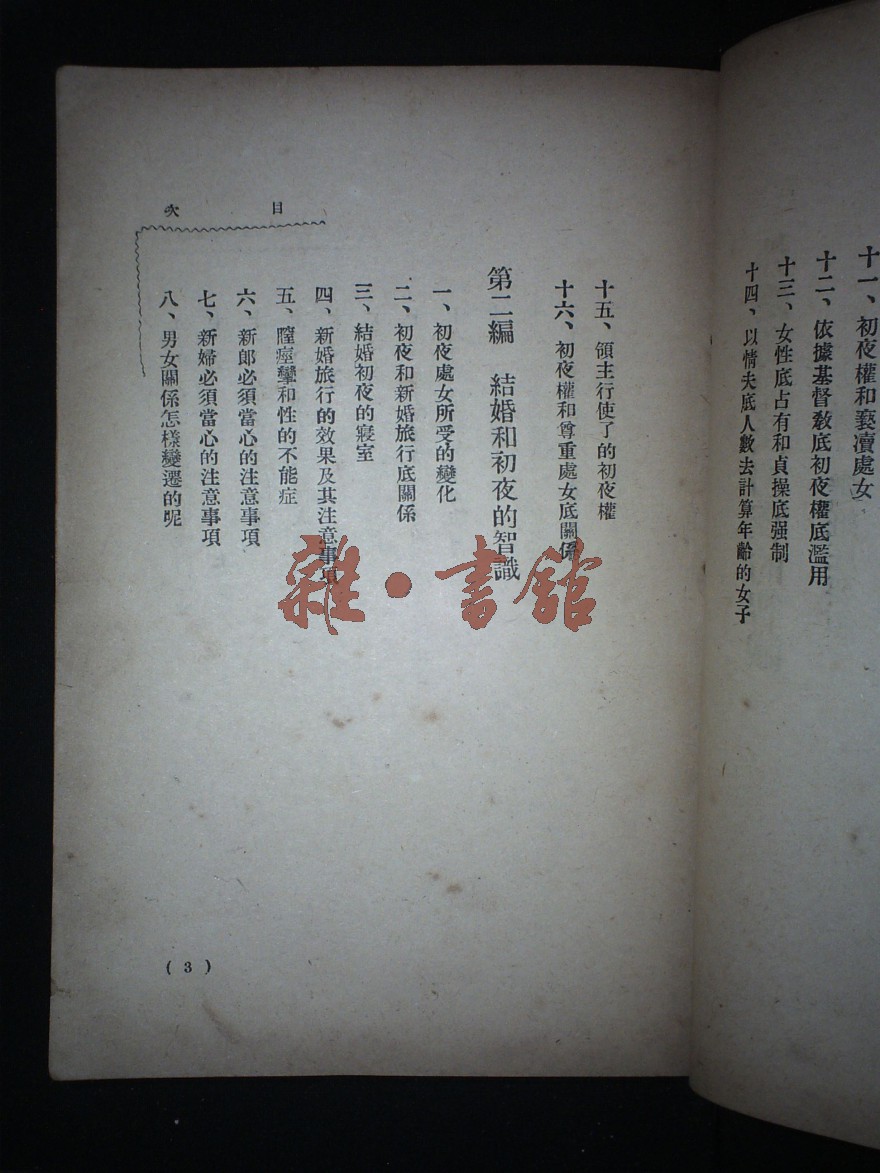 十一、初夜權和褻凟處女
十二、依據基督敎底初夜權底濫用
十三、女性底占有和貞操底强制
十四、以情夫底人數去計算年齡的女子
目次
十五、領主行使了的初夜權
十六、初夜權和尊重處女底關係
第二編　結婚和初夜的智識
一、初夜處女所受的變化
二、初夜和新婚旅行底關係
三、結婚初夜的寢室
四、新婚旅行的效果及其注意事項
五、膣痙攣和性的不能症
六、新郎必須當心的注意事項
七、新婦必須當心的注意事項
八、男女關係怎樣變遷的呢
(3)
雜·書館